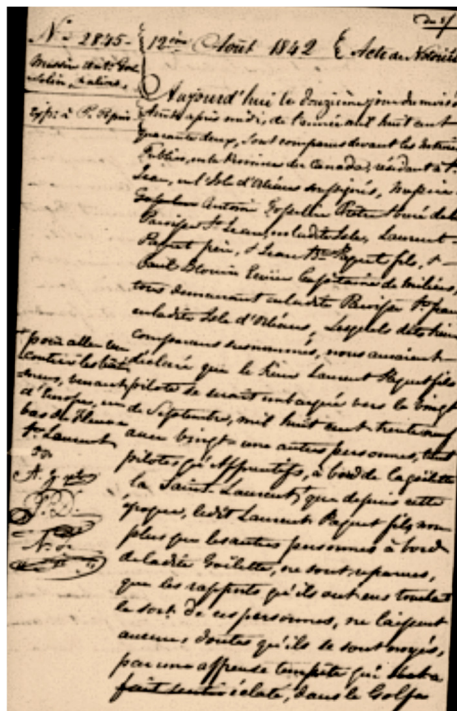 No 2845 –
12ième Août 1842
Acte de Notoriété
Messire Ant. Gos-
selin, & autres,
Aujourd'hui le douzième jour du mois d'
Août après midi, de l'année mil huit cent
quarante deux, sont comparus devant les Notaires
Publics, en la Province du Canada, résidant à St.
Jean, en l'Isle d'Orléans soussignés, Messire
Antoine Gosselin Prêtre Curé de la
Paroisse St. Jean, en ladite Isle, Laurent
Paquet père, & Jean Bte. Paquet fils, &
Paul Blouin Capitaine de Milice,
tous demeurant en ladite Paroisse St. Jean
en ladite Isle d'Orléans, Lesquels dits Sieurs
comparans susnommés, nous auraient
déclaré que le Sieur Laurent Paquet fils
pilote se serait embarqué vers le vingt
de Septembre, mil huit cent trente neuf
avec vingt une autres personnes, tant
pilotes qu'Apprentifs, à bord de la goëlette
la Saint Laurent, que depuis cette
époque, ledit Laurent Paquet fils, non
plus que les autres personnes à bord
de ladite Goëlette, ne sont reparues,
que les rapports qu'ils ont eus touchant
le sort de ces personnes, ne laissent
aucuns doutes qu'ils se sont noyés,
par une affreuse tempête qui
éclaté, dans le Golfe
pour aller en
d'Europe, en
bas du Fleuve
St. Laurent